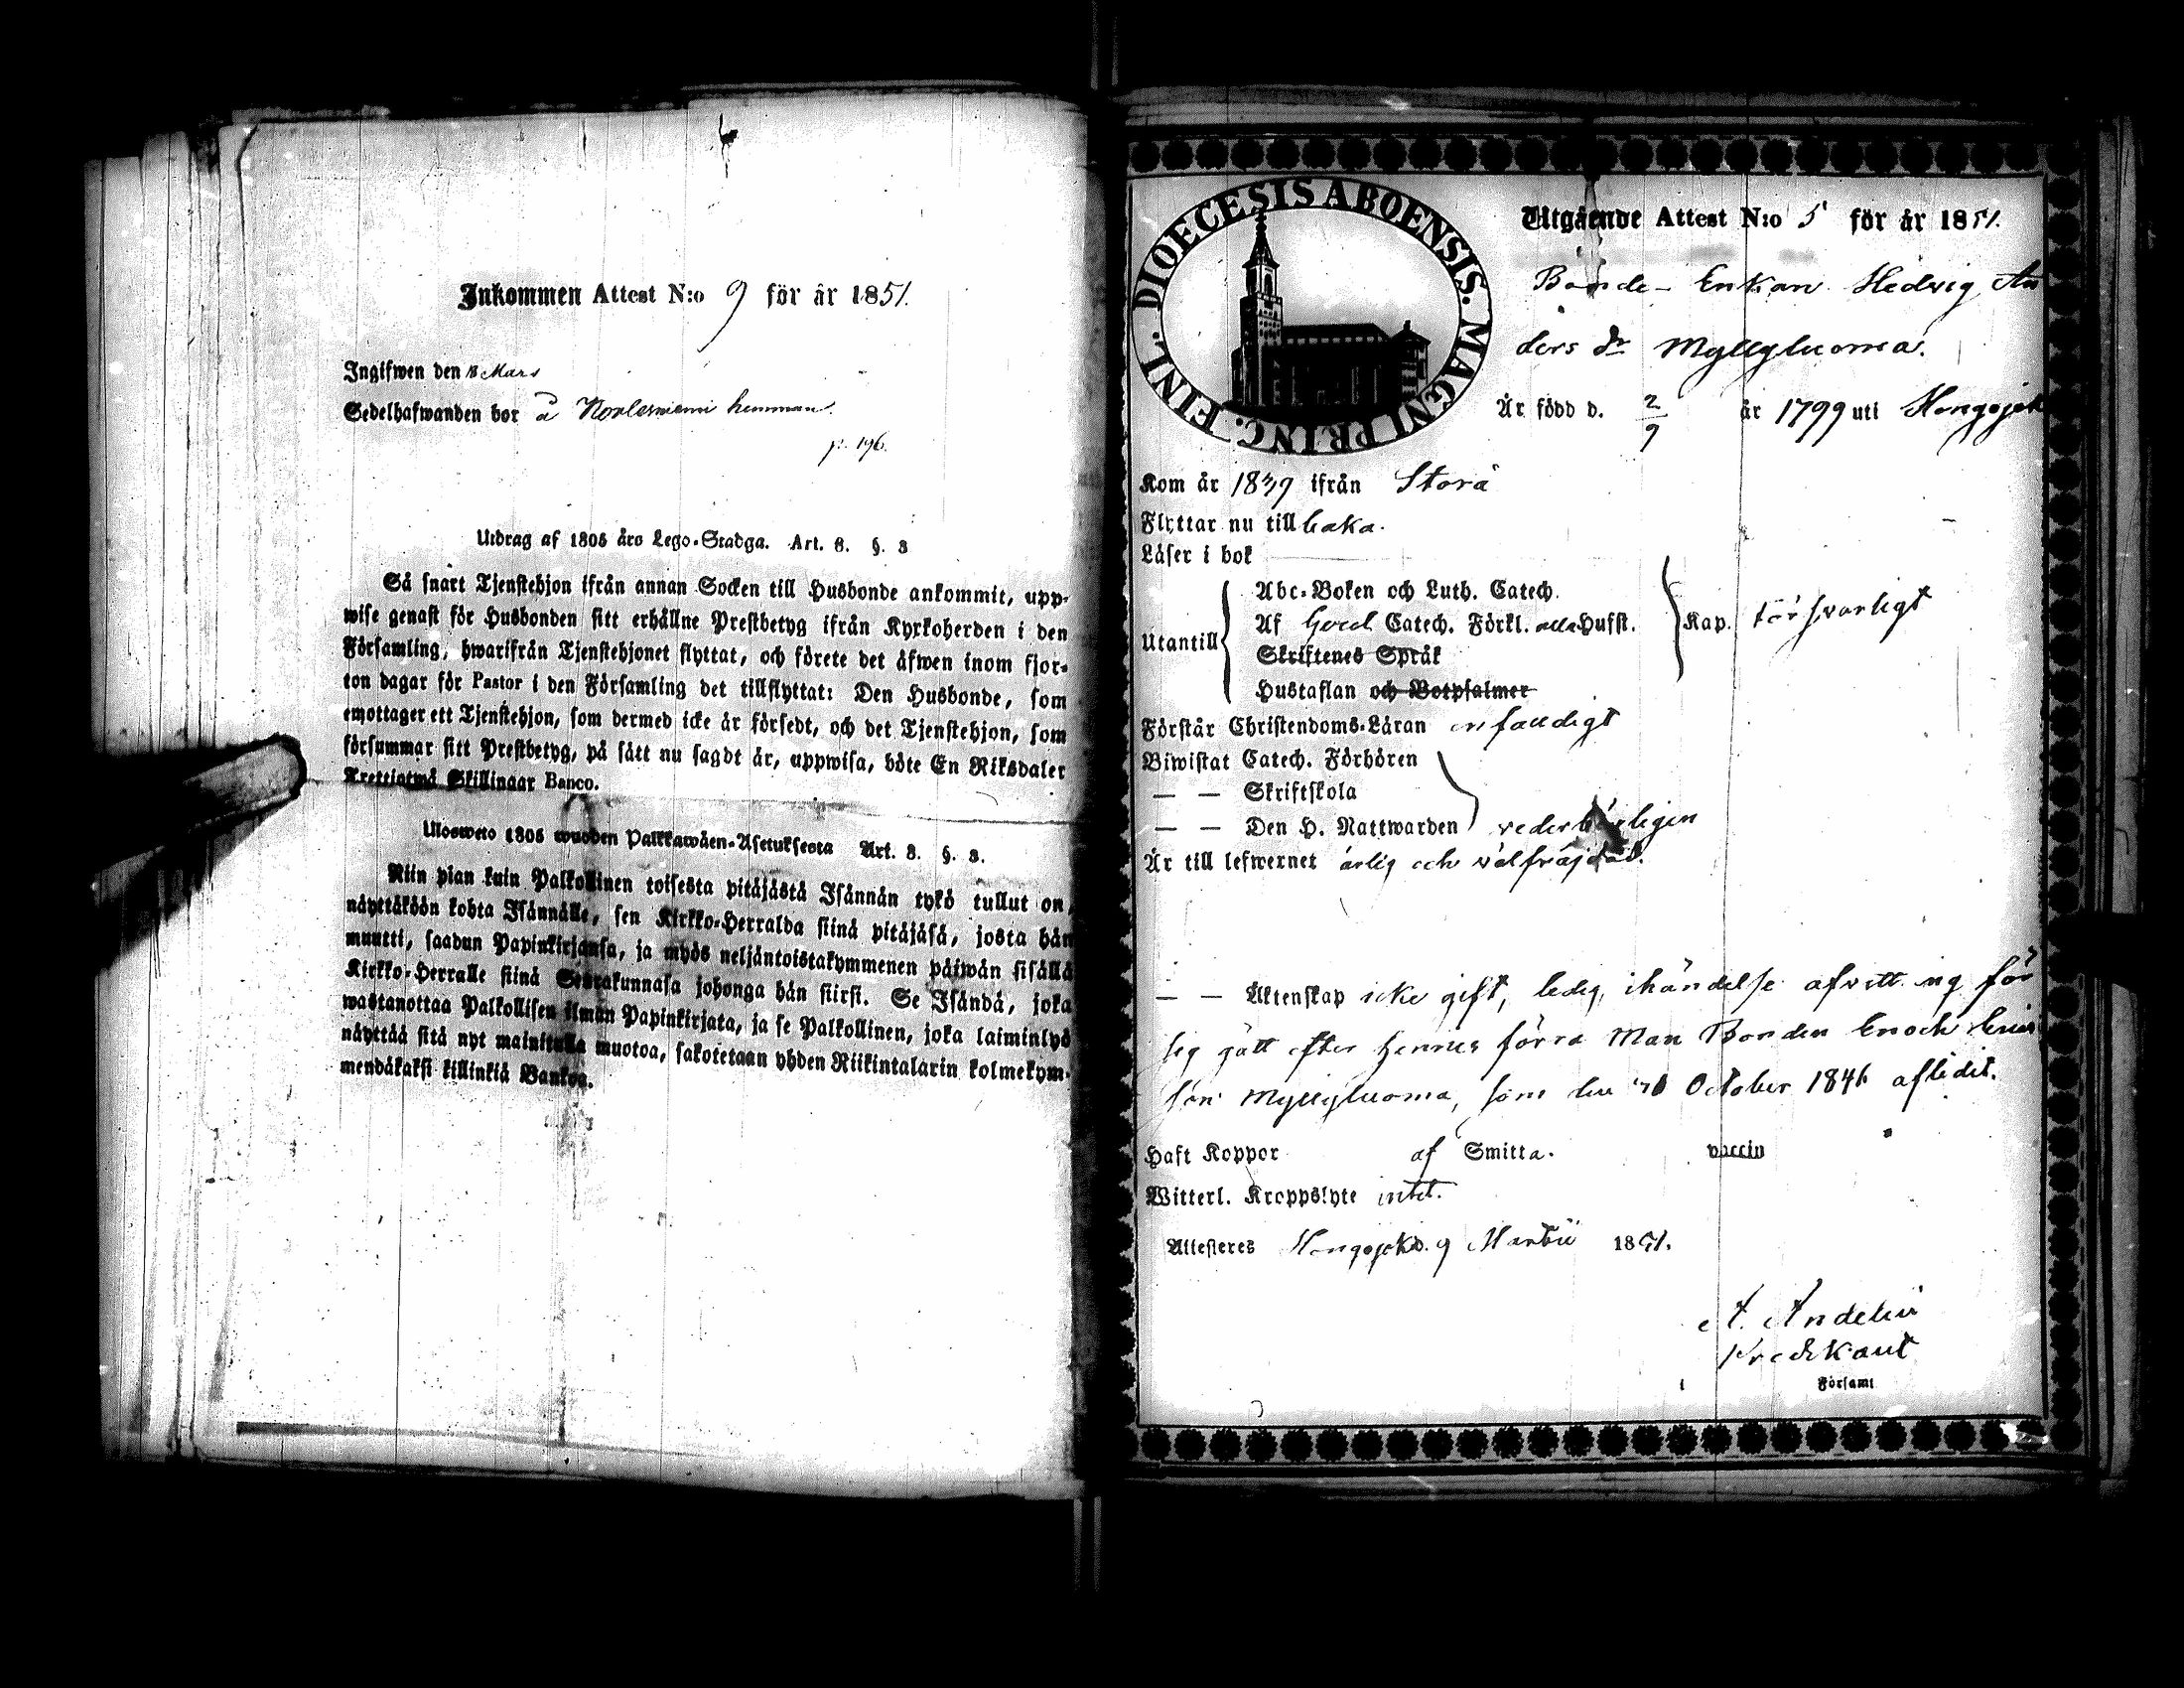 Inkommen Attest N:o 9 för år 1851.
Ingifwen den 18 Mars
Sedelhafwanden bor å hemman.
p. 196.
Utdrag af 1805 års Lego-Stadga. Art. 8. §. 3
Så snart Tjenstehjon ifrån annan Socken till Husbonde ankommit, upp-
wise genast för Husbonden sitt erhållne Prestbetyg ifrån Kyrkoherden i den
Församling, hwarifrån Tjenstehjonet flyttat, och förete det äfwen inom fjor-
ton dagar för Pastor i den Församling det tillflyttat: Den Husbonde, som
emottager ett Tjenstehjon, som dermed icke är försedt, och det Tjenstehjon, som
försummar sitt Prestbetyg, på sätt nu sagdt är, uppwisa, böte En Riksdaler
Trettiotwå Skillingar Banco.
Ulosweto 1805 wuoden Palkkawäen-Asetuksesta Art. 8. §. 3.
Niin pian kuin Palkollinen toisesta pitäjästä Isännän tykö tullut on,
näyttäköön kohta Isännälle, sen Kirkko-Herralda siinä pitäjäsä, josta hän
muutti, saadun Papinkirjansa, ja myös neljäntoistakymmenen päiwän sisällä
Kirkko-Herralle siinä Seurakunnasa johonga hän siirsi. Se Isändä, joka
wastanottaa Palkollisen ilman Papinkirjata, ja se Palkollinen, joka laiminlyö
näyttää sitä nyt mainitulla muotoa, sakotetaan yhden Riikintalarin kolmekym-
mendäkaksi killinkiä Bankoa.
DIOECESIS ABOENSIS. MAGNI PRINC. FINL.
Utgående Attest N:o 5 för år 1851.
Bonde-Enkan Hedvig An
ders dr Myllyluoma.
Är född d. 2/9 år 1799 uti Hongojok
Kom år 1839 ifrån Storå
Flyttar nu tillbaka.
Läser i bok
Utantill
Abc-Boken och Luth. Catech.
Af Catech. Förkl. alla Hufst.
Skriftenes Språk
Hustaflan och Botpsalmer
Kap. försvarligt
Förstår Christendoms-Läran enfaldigt
Biwistat Catech. Förhören
— — Skriftskola
— — Den H. Nattwarden vederbörligen
Är till lefwernet ärlig och välfräjdad.
— — Äktenskap icke gift, ledig, ihändelse afvittring för
sig gått efter hennes förra Man Bonden Enoch
son Myllyluoma, som den October 1846 aflidit.
Haft Koppor af Smitta. vaccin
Witterl. Kroppslyte intet.
Attesteres Hongojoki d. 9 Martii 1851.
A. Andelin
Predikant
Församl